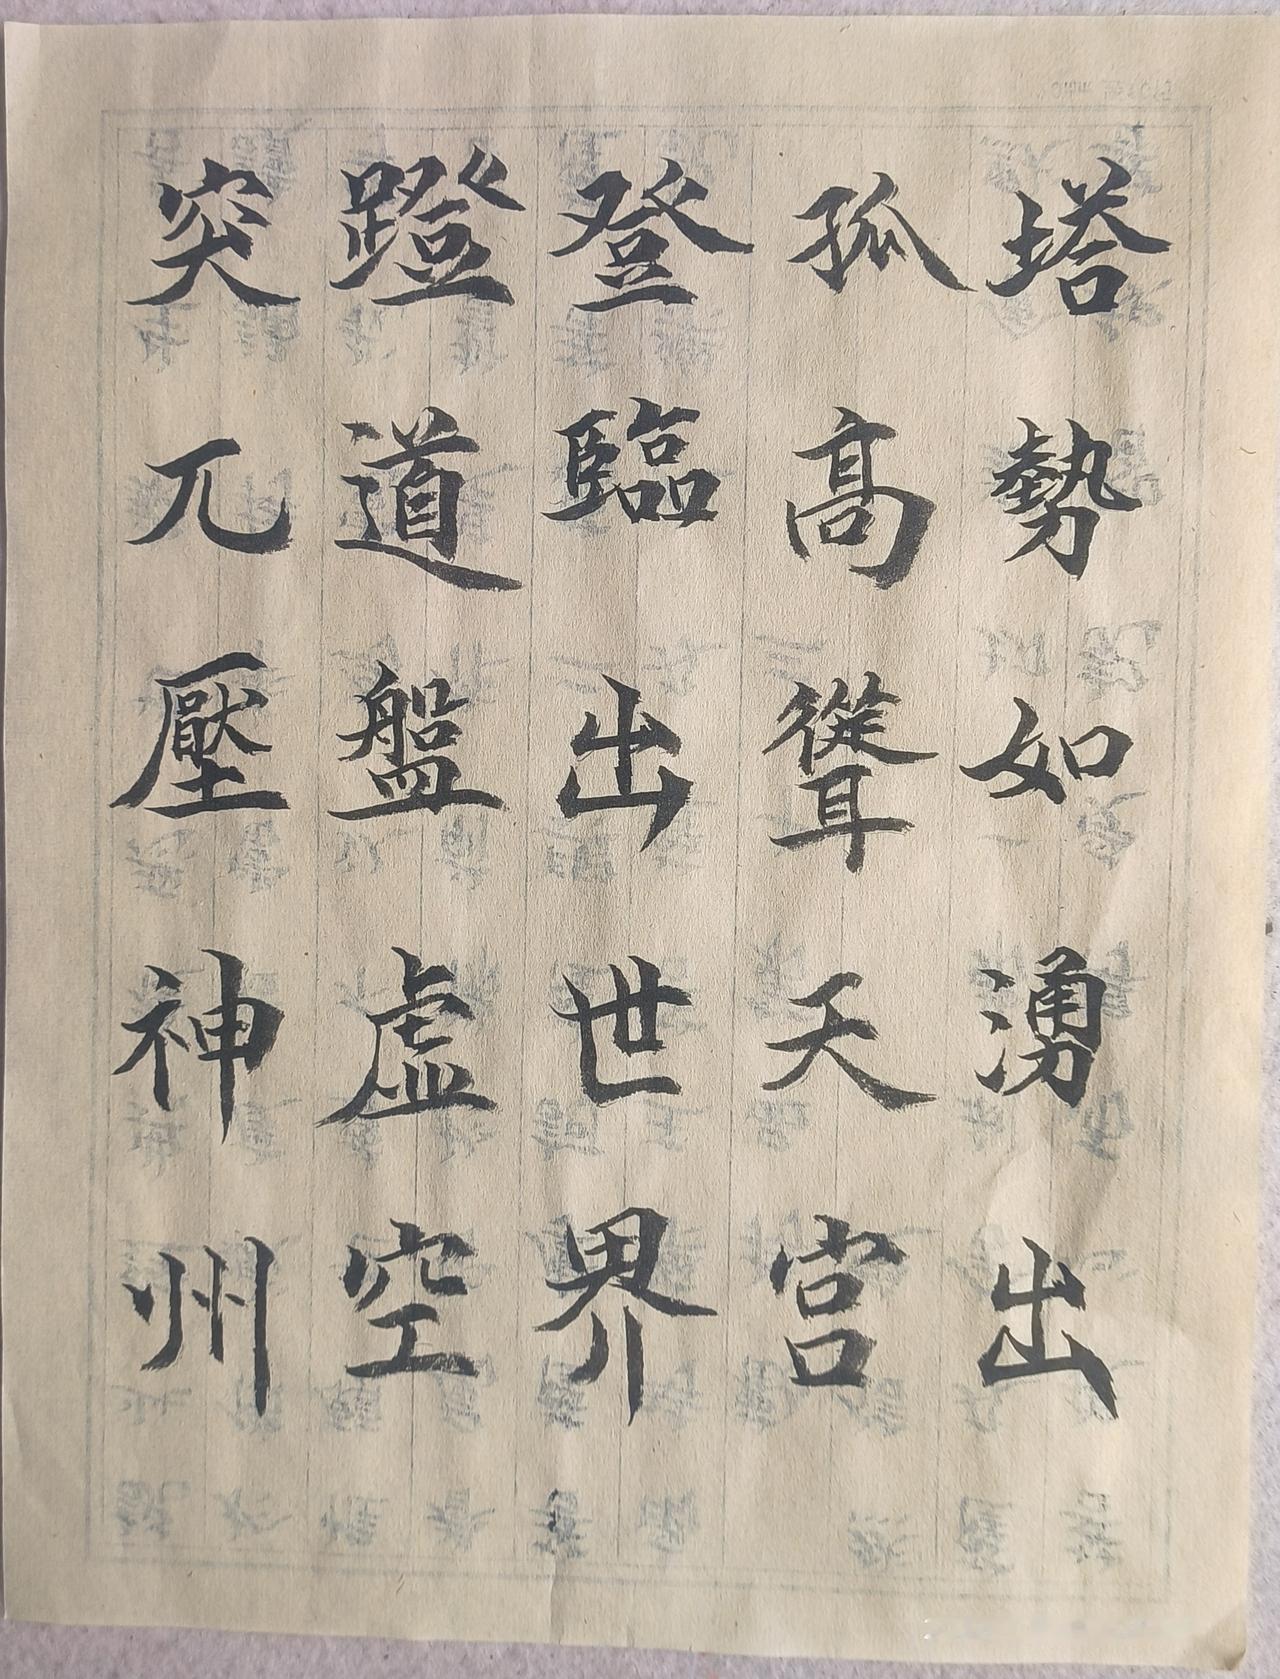 塔勢如湧出
孤高聳天宮
登臨出世界
蹬道盤虛空
突兀壓神州